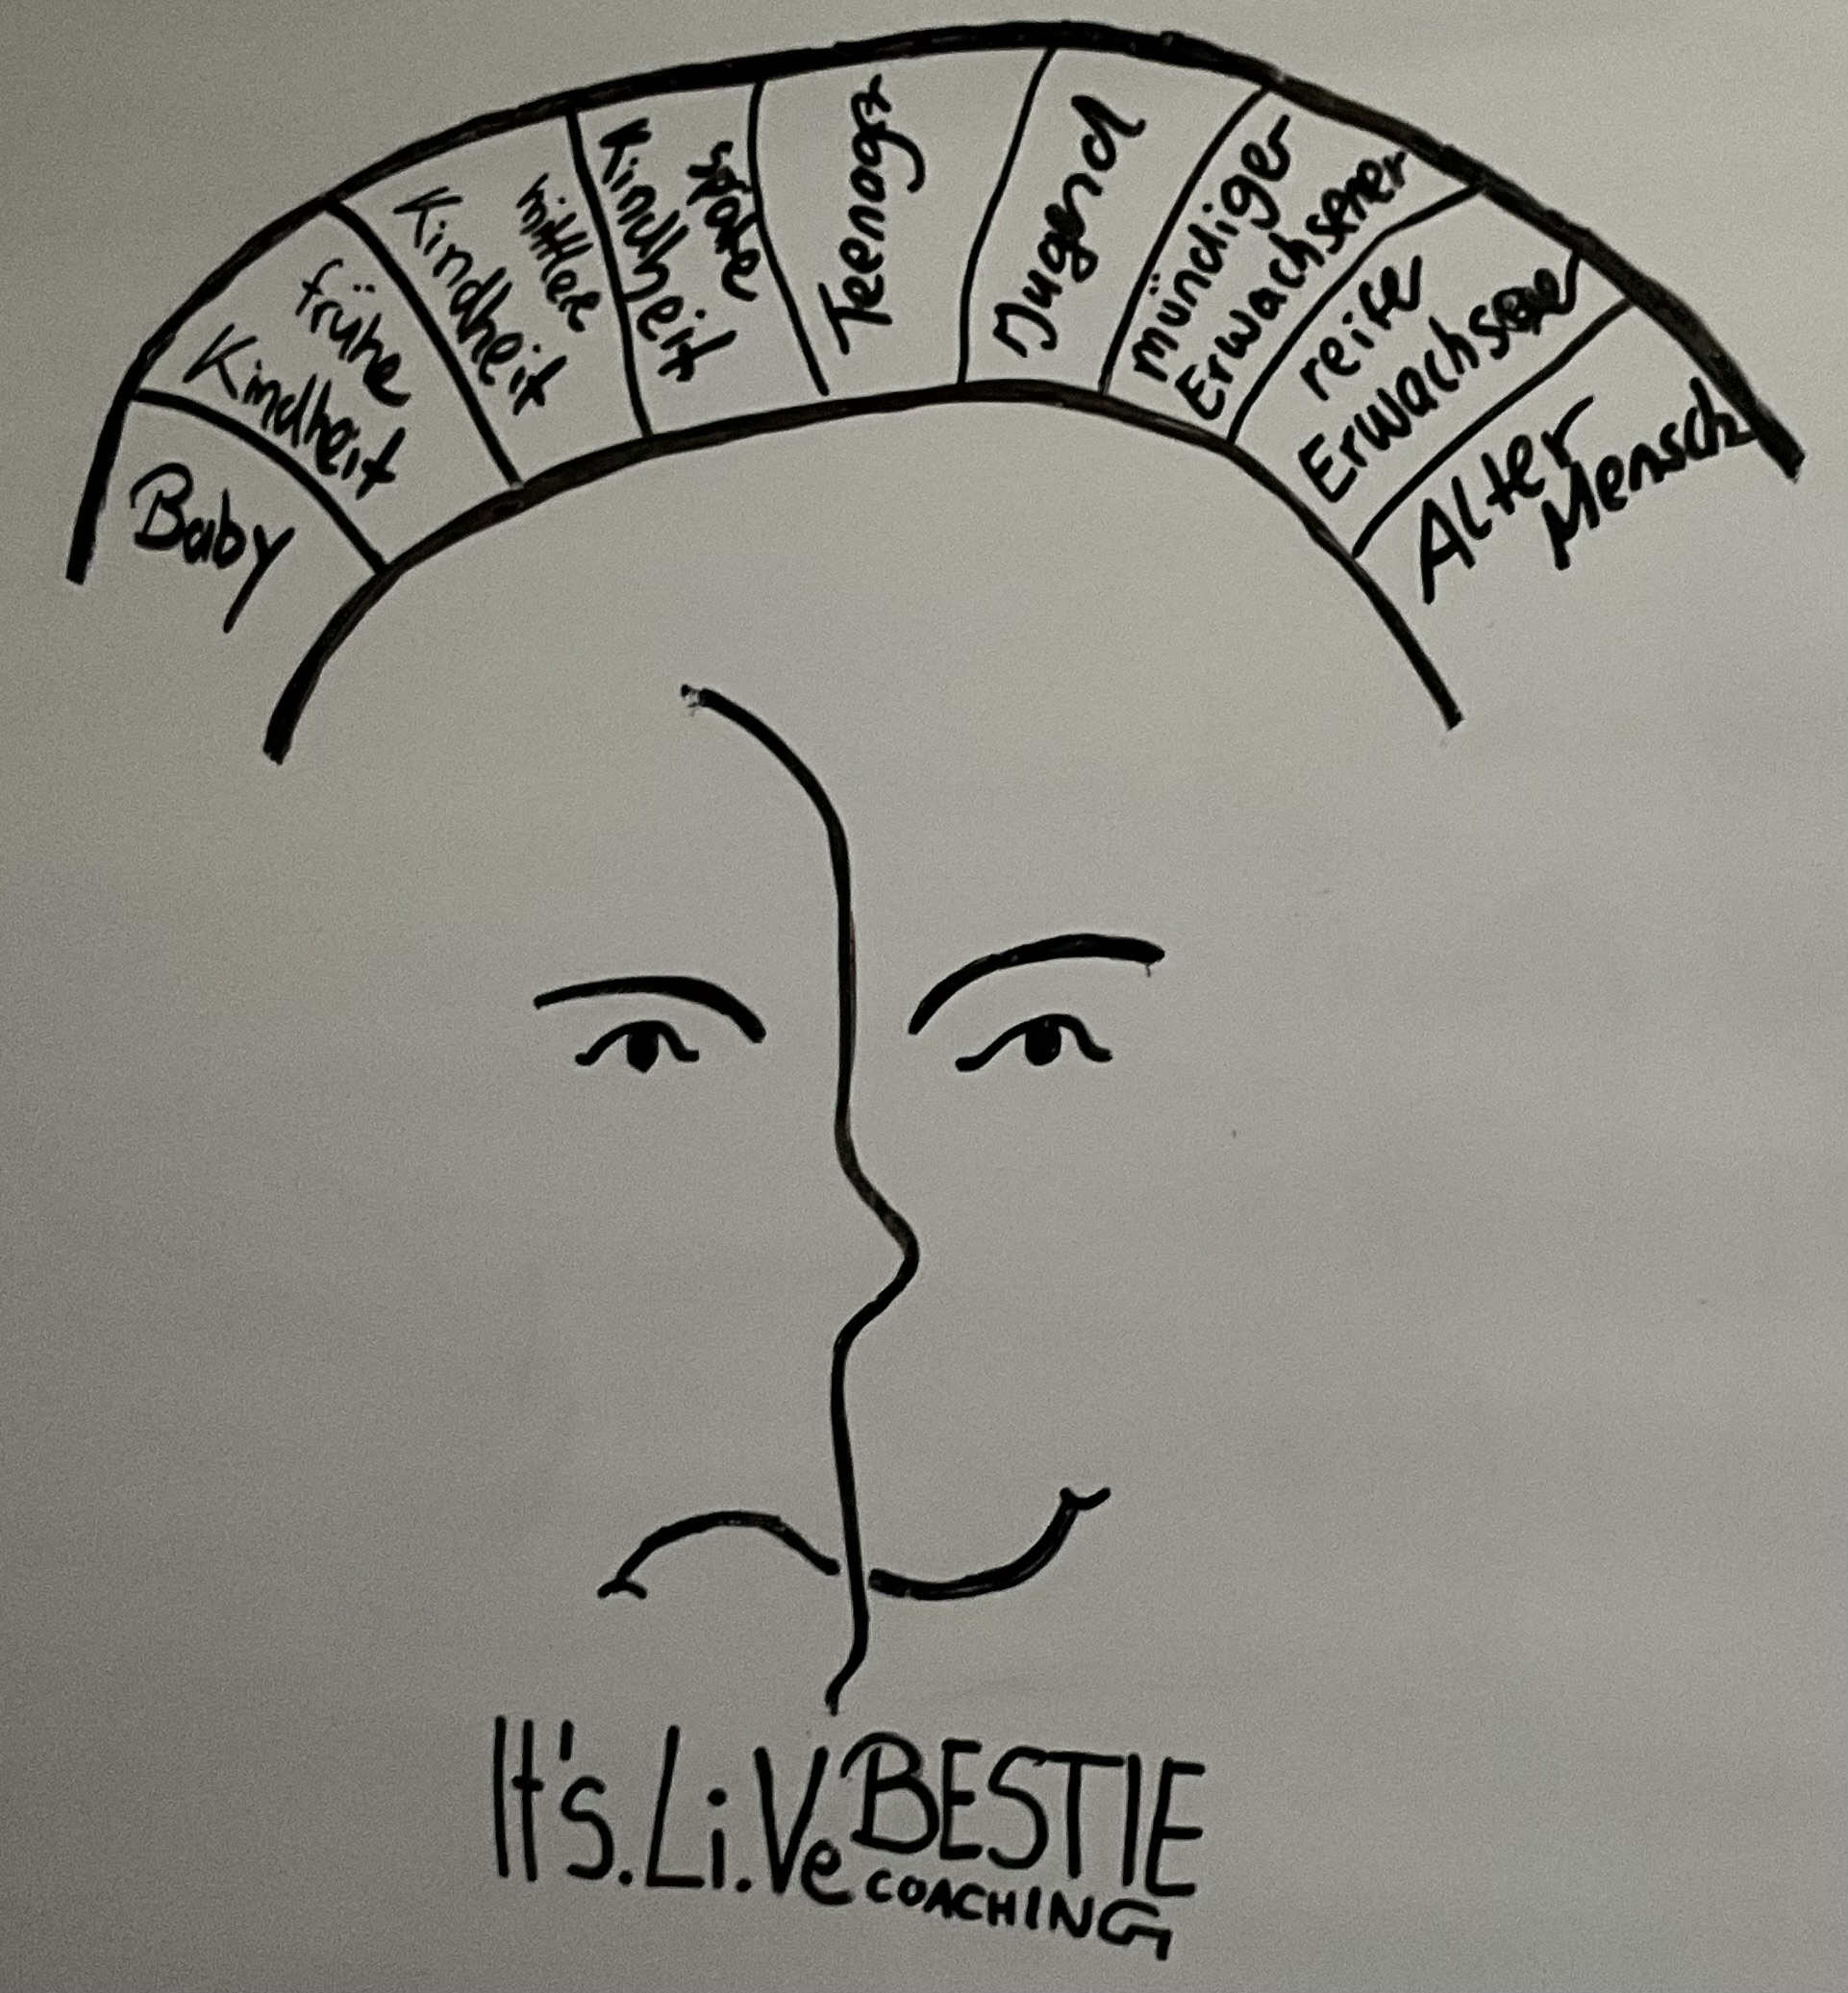 Baby
frühe
Kindheit
mittlere
Kindheit
späte
Kindheit
Teenager
Jugend
mündiger
Erwachsener
reifer
Erwachsener
Alter
Mensch
It's.Li.Ve BESTIE
COACHING